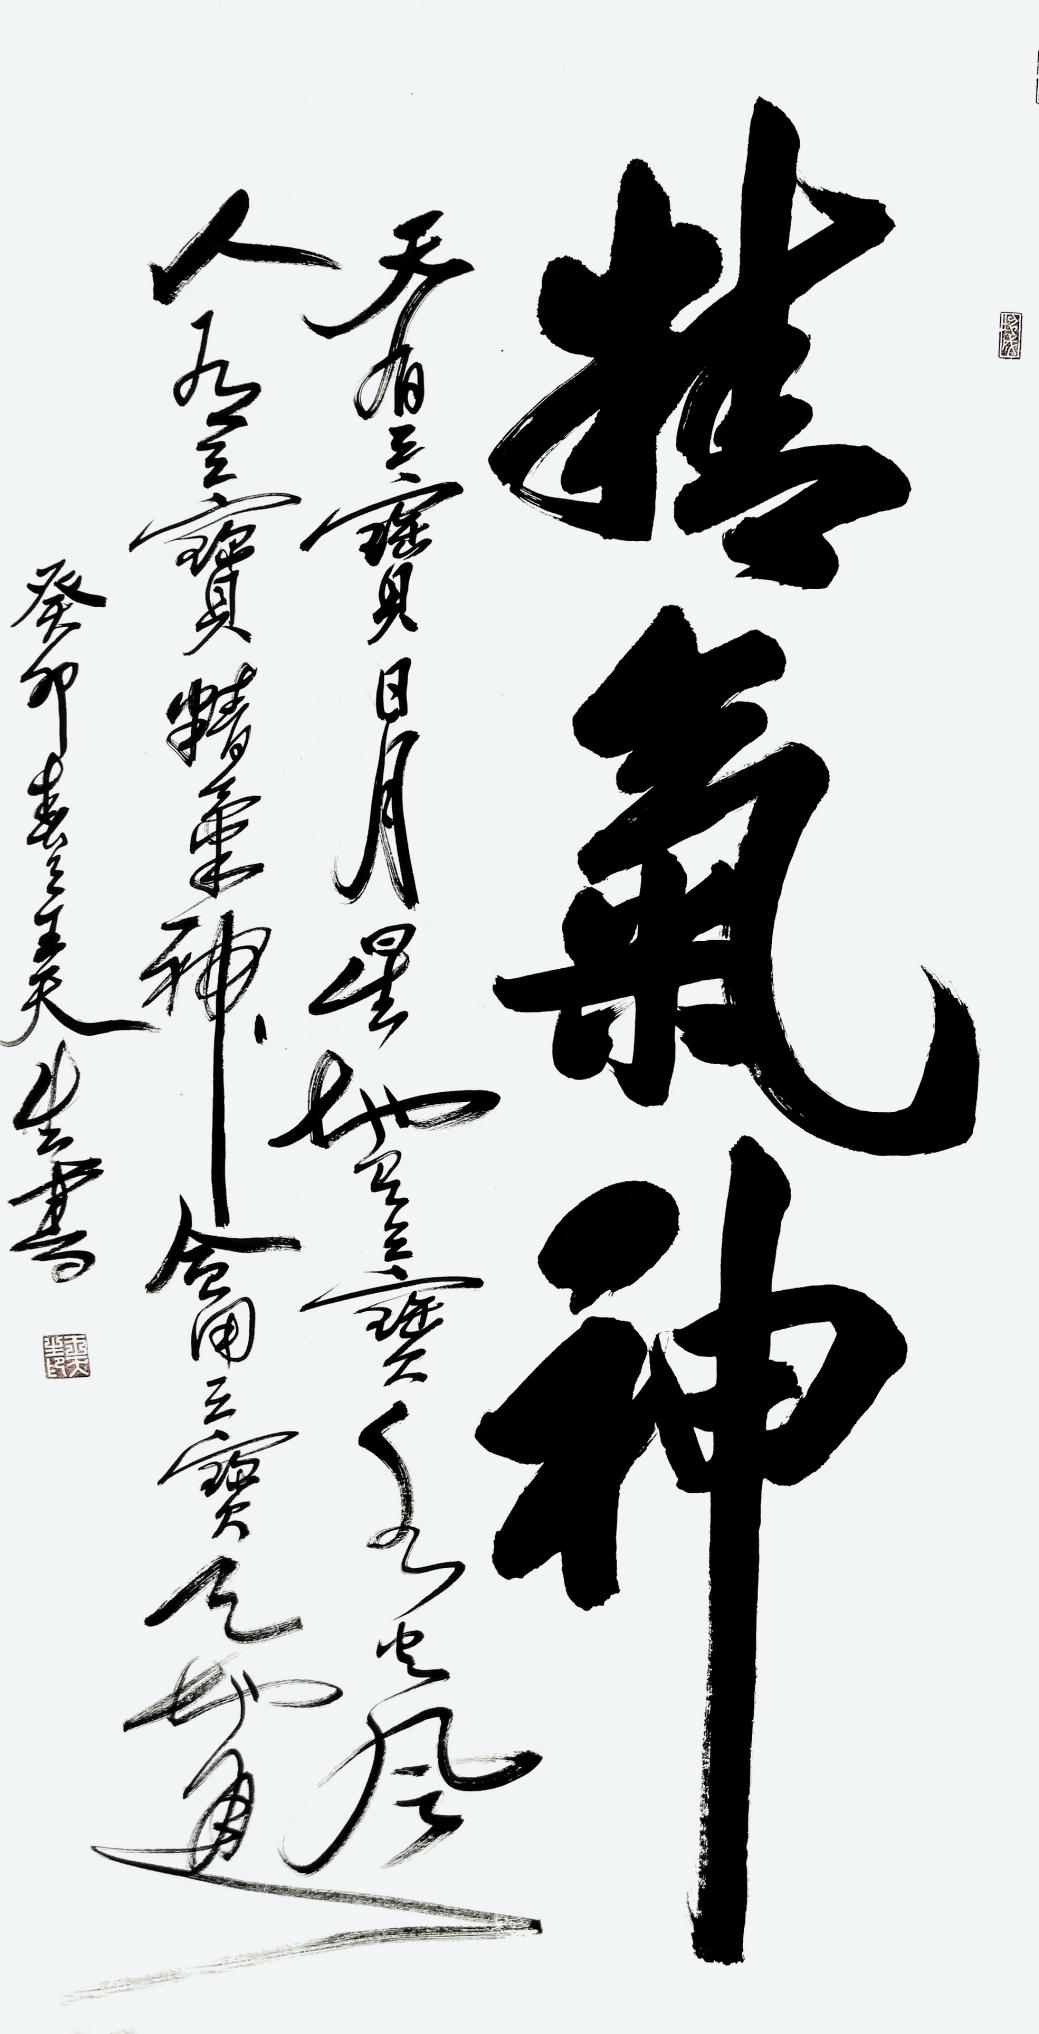 精氣神
天有三寶日月星地有三寶水火風
人有三寶精氣神會用三寶天地通
癸卯春之王天生書